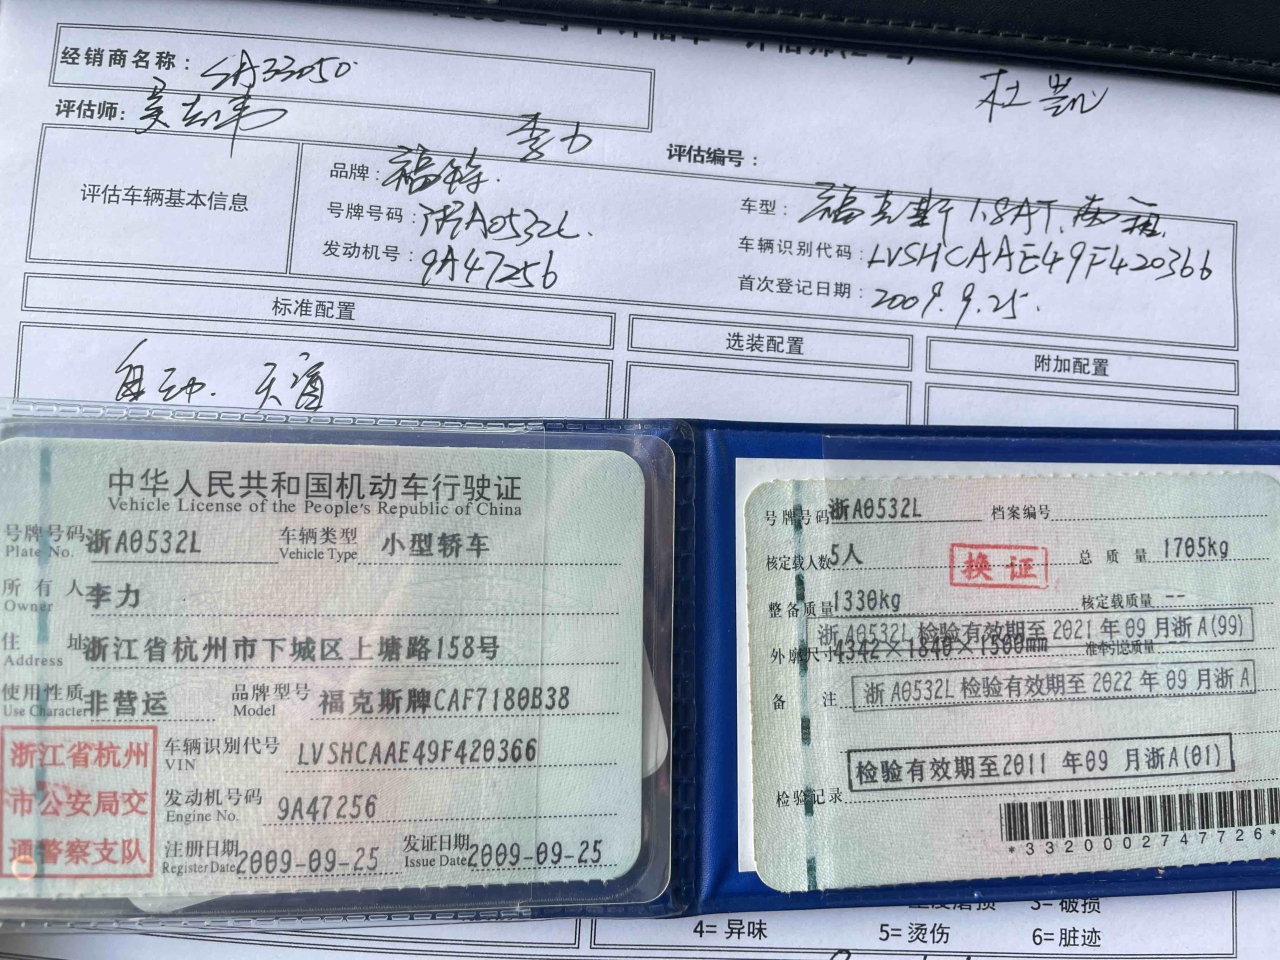 经销商名称: SA33050
杜凯
评估师:
李力
评估编号:
评估车辆基本信息
品牌: 福特.
车型: 福克斯 1.8AT.
号牌号码: 浙A0532L.
车辆识别代码: LVSHCAAE49F420366
发动机号: 9A47256
首次登记日期: 2009.9.25.
标准配置
选装配置
附加配置
自动. 天窗
中华人民共和国机动车行驶证
Vehicle License of the People's Republic of China
号牌号码 浙A0532L 车辆类型 小型轿车
Plate No. Vehicle Type
所有人 李力
Owner
住址 浙江省杭州市下城区上塘路158号
Address
使用性质 非营运 品牌型号 福克斯牌CAF7180B38
Use Character Model
浙江省杭州
市公安局交
通警察支队
车辆识别代号 LVSHCAAE49F420366
VIN
发动机号码 9A47256
Engine No.
注册日期 2009-09-25 发证日期 2009-09-25
Register Date Issue Date
号牌号码 浙A0532L 档案编号
核定载人数 5人 总质量 1705kg
换证
整备质量 1330kg 核定载质量 --
浙A0532L 检验有效期至2021年09月浙A(99)
外廓尺寸 4342×1840×1500mm 准牵引总质量
备注 浙A0532L 检验有效期至2022年09月浙A
检验有效期至2011年09月浙A(01)
检验记录
*3320002747726*
3= 破损
4= 异味 5= 烫伤 6= 脏迹